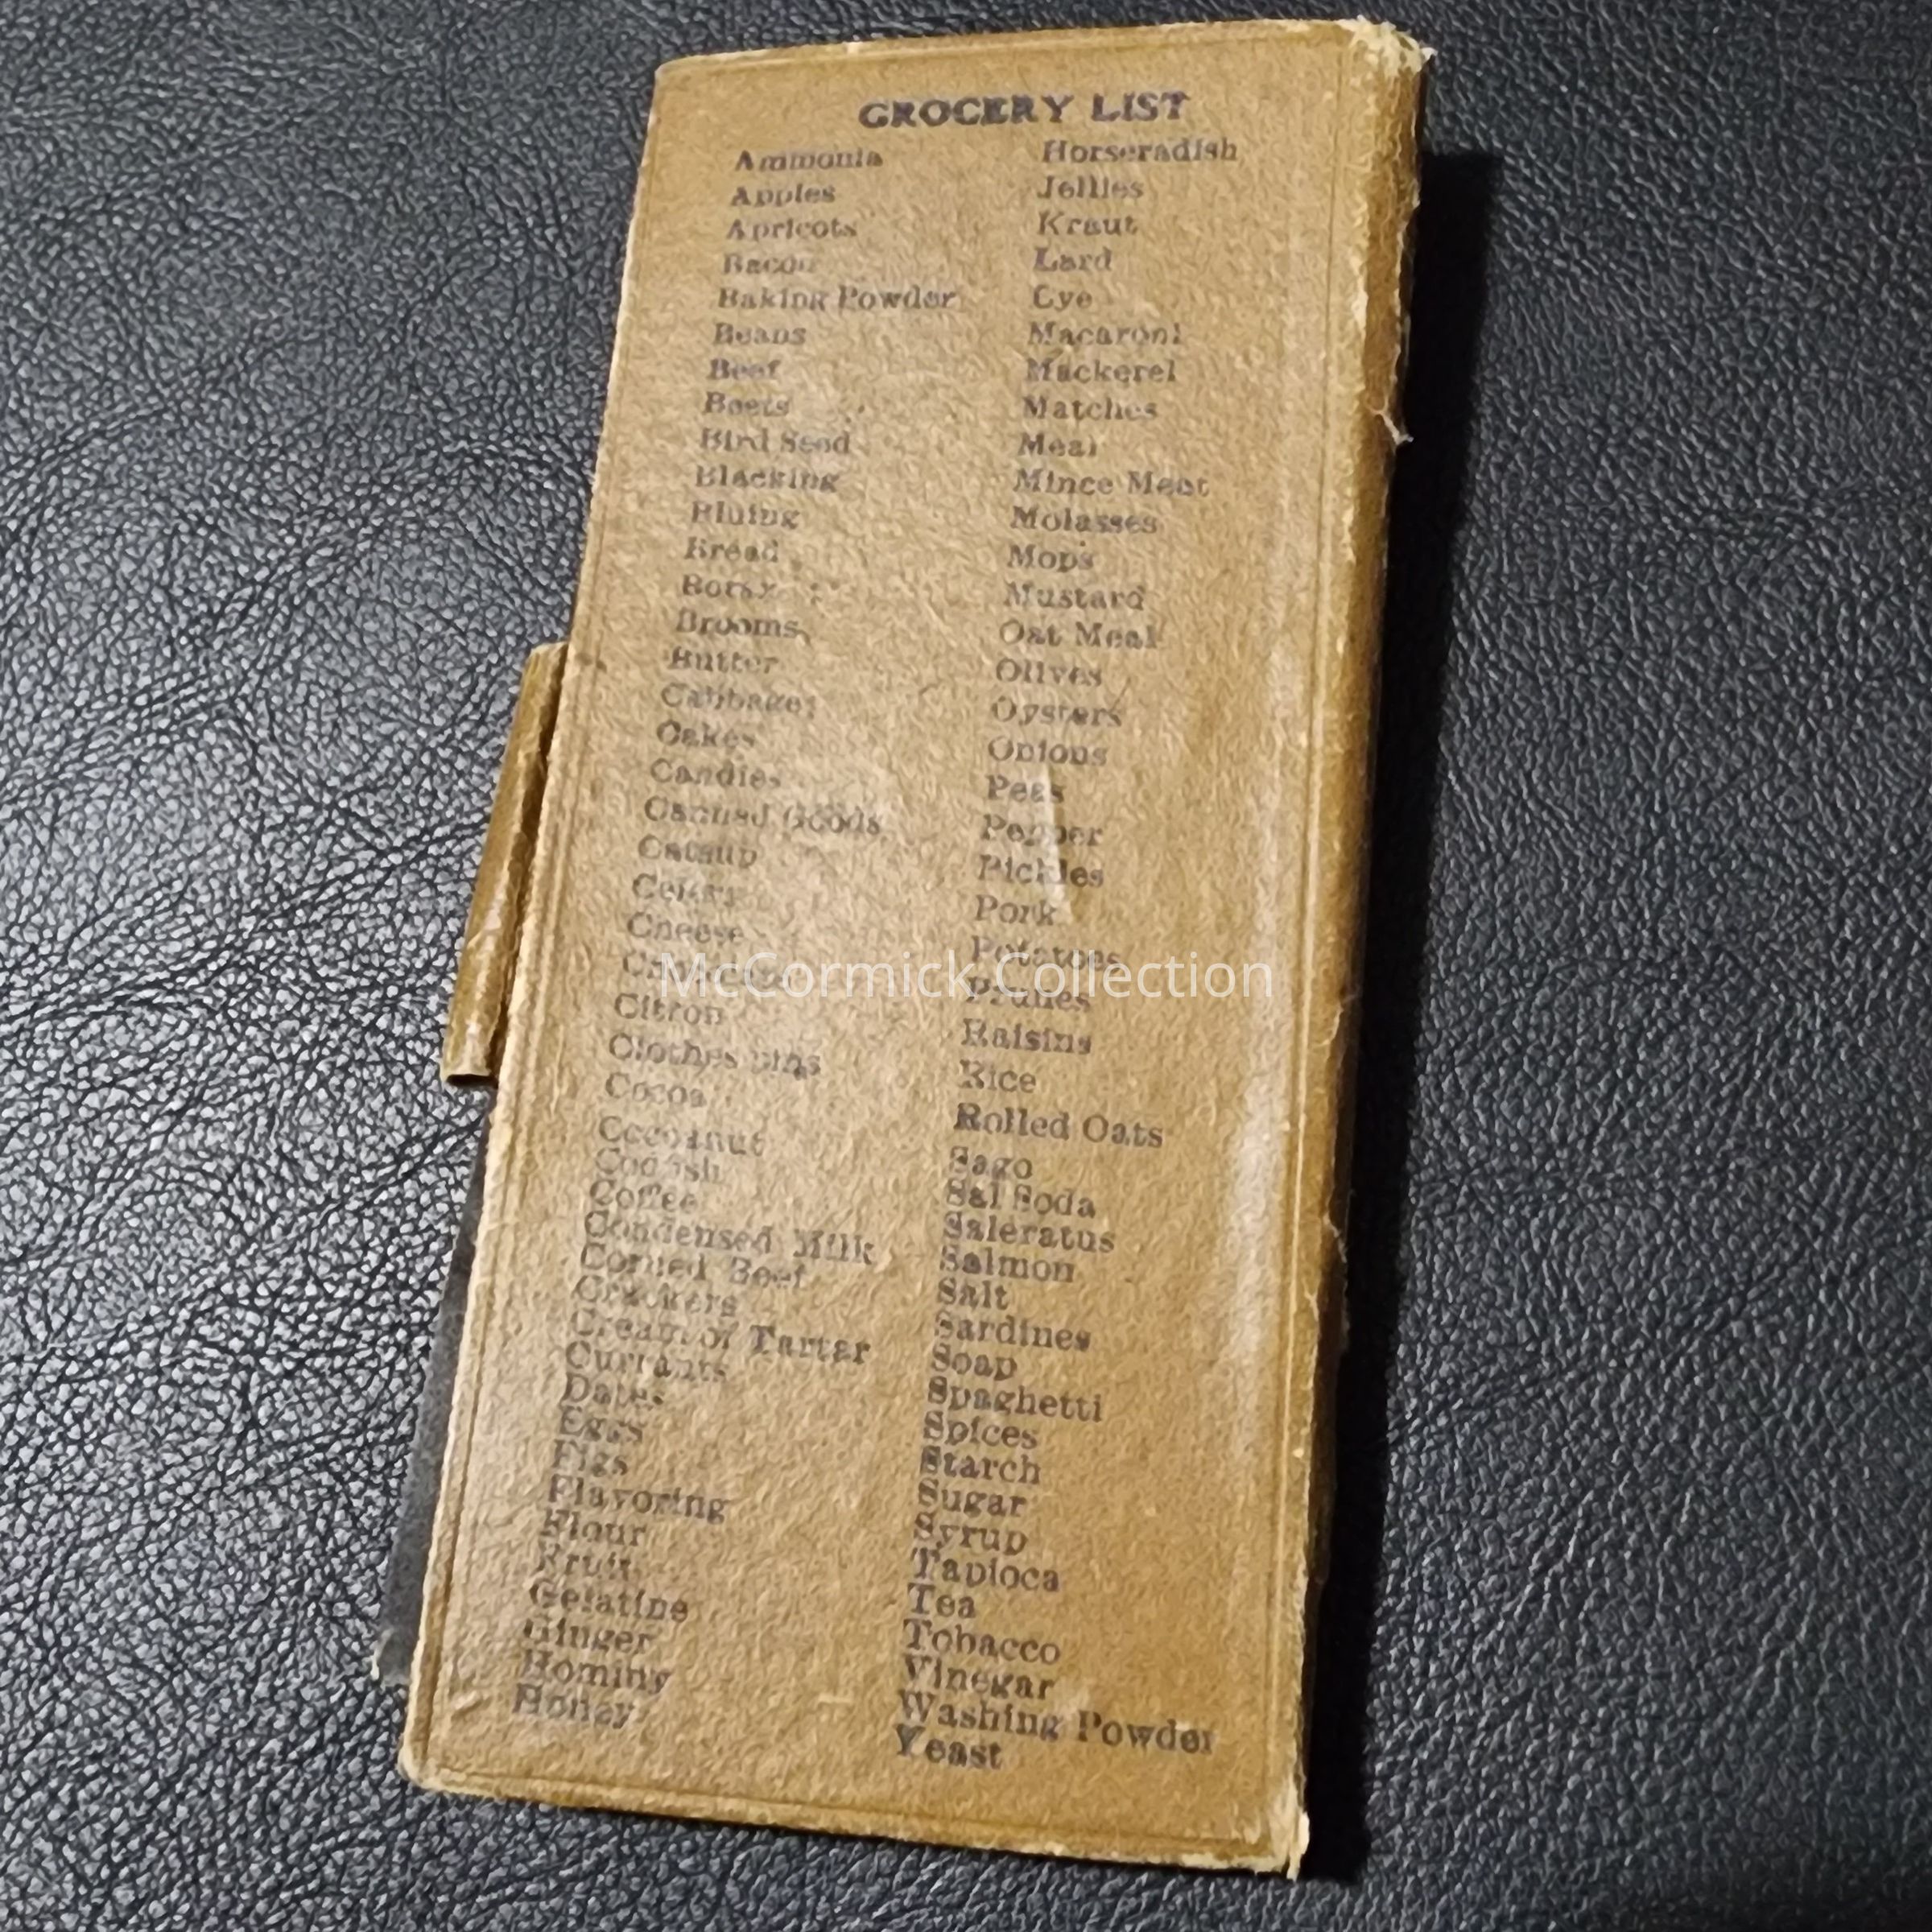 GROCERY LIST
Ammonia
Apples
Apricots
Bacon
Baking Powder
Beans
Beef
Beets
Bird Seed
Blacking
Bluing
Bread
Borax
Brooms
Butter
Cabbages
Cakes
Candies
Canned Goods
Catsup
Celery
Cheese
Citron
Clothes pins
Cocoa
Cocoanut
Codfish
Coffee
Condensed Milk
Corned Beef
Crackers
Cream of Tartar
Currants
Dates
Eggs
Figs
Flavoring
Flour
Fruit
Gelatine
Ginger
Hominy
Honey
Horseradish
Jellies
Kraut
Lard
Lye
Macaroni
Mackerel
Matches
Meal
Mince Meat
Molasses
Mops
Mustard
Oat Meal
Olives
Oysters
Onions
Peas
Pepper
Pickles
Pork
Potatoes
Prunes
Raisins
Rice
Rolled Oats
Sago
Sal Soda
Saleratus
Salmon
Salt
Sardines
Soap
Spaghetti
Spices
Starch
Sugar
Syrup
Tapioca
Tea
Tobacco
Vinegar
Washing Powder
Yeast
McCormick Collection